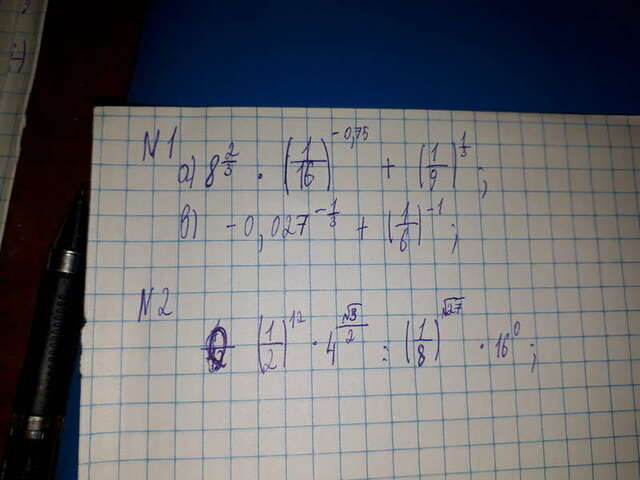 N1
а) 8^(2/3) · (1/16)^(-0,75) + (1/9)^(1/3);
в) -0,027^(-1/3) + (1/6)^(-1);
N2
(1/2)^12 · 4^(√3/2) : (1/8)^(√27) · 16^0;